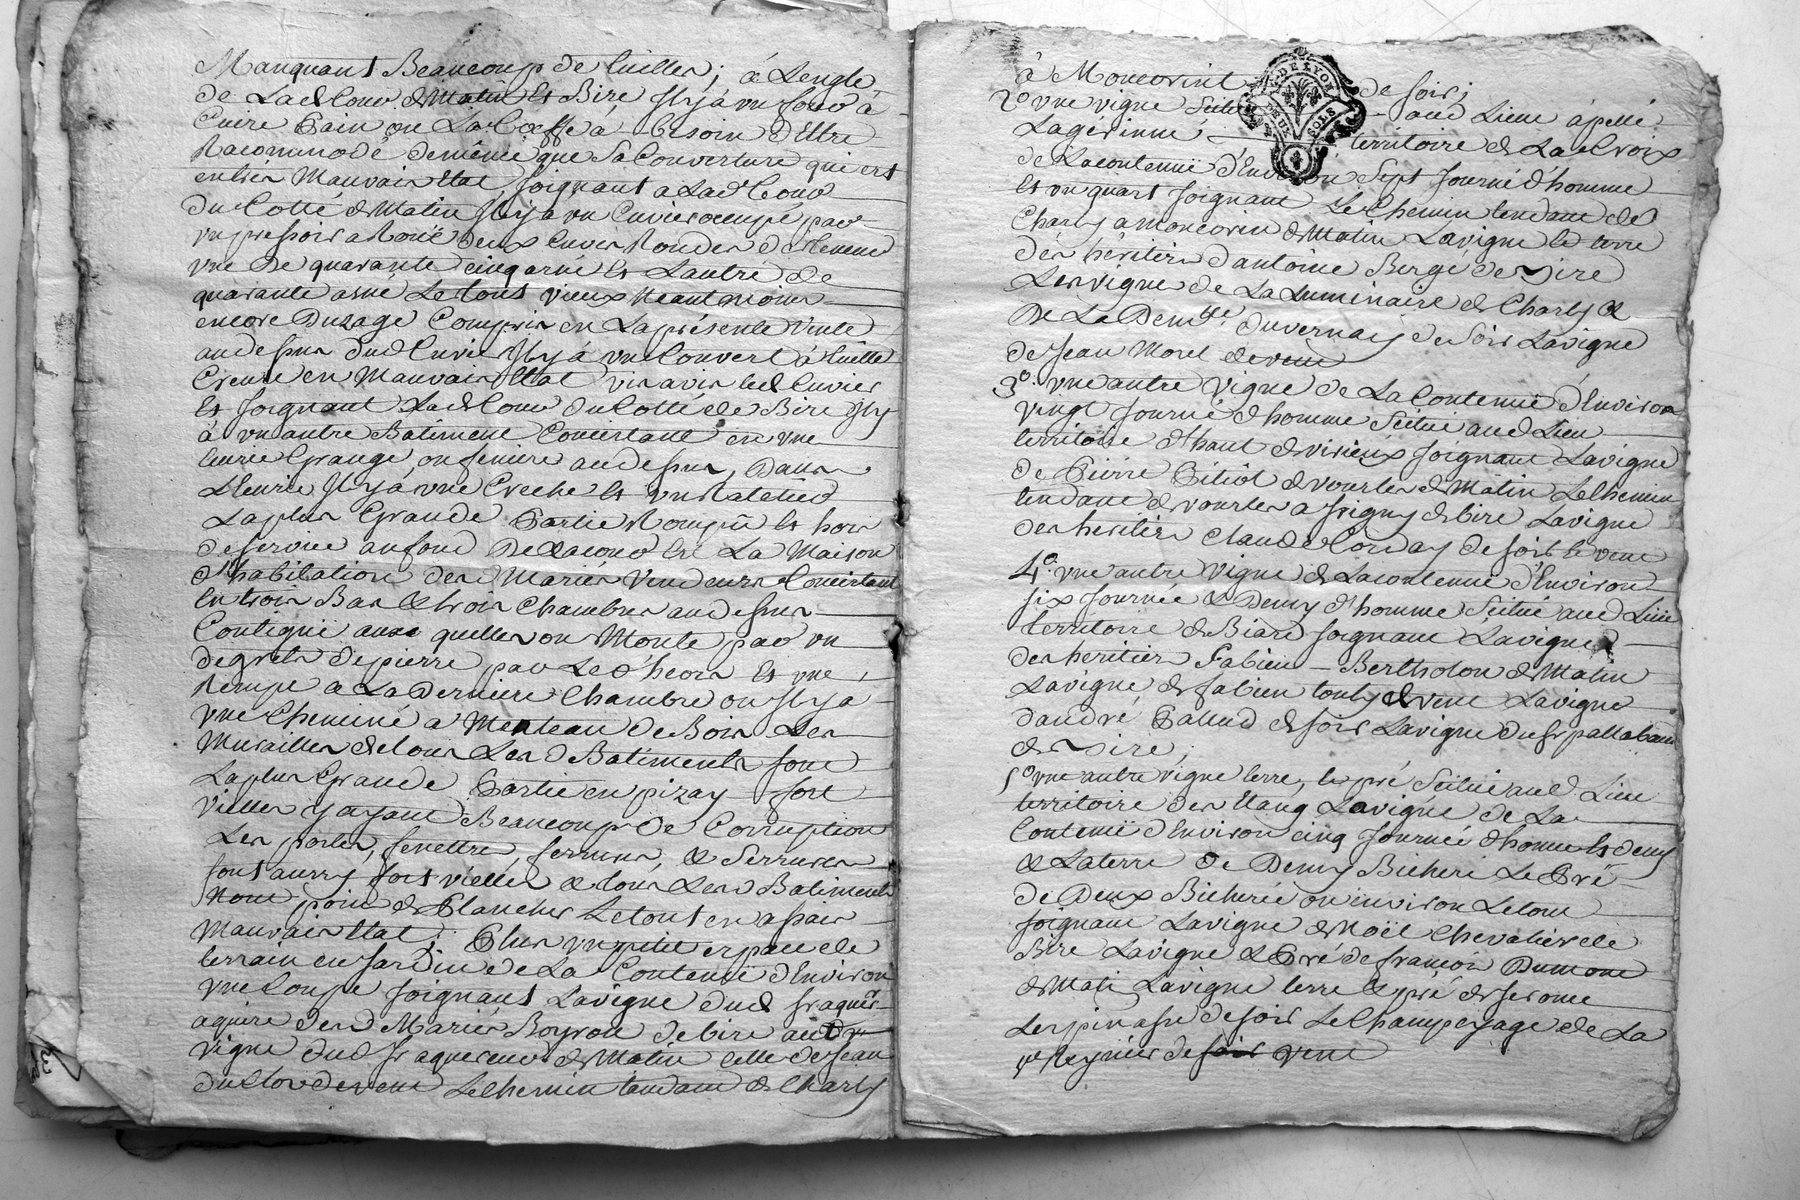 Manquant Beaucoup de tuilles; à Lengle
de Lad Cour de Matin et Bize Il y a un four à
Cuire Pain ou La Coeffe à besoin d'Etre
Racommodé demême que Sa Couverture qui est
entres Mauvais Etat, joignant a Lad Cour
du Cotté de Matin Il y a un Cuvier occupé par
un pressoir a Roüe deux Cuves Rondes de
une De quarante cinq asné et Lautre de
quarante asné Le tout vieux Neantmoins
encore Duzage Compris en La présente Vente
audessus dud Cuvier Il y à un Couvert à tuille
Creuse en Mauvais Etat vis avis led Cuvier
Et joignant Lad Cour du Cotté de Bize Il y
à un autre Batiment Concistant en une
Ecurie Grange ou feniere audessus, Dans
L'Ecurie Il y a une Creche et un Ratelier
La plus Grande Partie Rompû et hors
de service au fond De La Cour Est La Maison
d'habitation des d Mariés Vendeurs Concistant
En trois Bas & trois Chambres audessus
Contigüe aux quelles on Monte par un
degrets de pierre par Le dehors et une
Rempe a La Derniere Chambre ou Il y a
une Cheminé a Menteau de Bois Les
Murailles de tous Les d Batiments sont
La plus Grande Partie en pizay fort
vielles y ayant Beaucoup De Corruption
Les portes, fenettres, ferrures, & Serrures
sont aussy fort vielles & tous Les d Batiments
Nont point de Planches Le tout en
Mauvais Etat; Plus un petit espace de
terrain en Jardin de La Contenüe d'Environ
une Coupe joignant Lavigne dud Sr
des d Mariés Boyron de bize
vigne dud Sr de Matin celle de Jean
du Clos de vent Le Chemin tendant de Charly
à Moncorint de soir;
2° une vigne Scitu aud Lieu apellé
Lagérinne territoire de La Croix
de La contenuë d'Environ Sept Journé d'homme
et un quart joignant Le Chemin tendant de
Charly a Moncorin de Matin Lavigne et terre
des héritiers d'antoine Bergé de Bize
Les vigne de La Luminaire de Charly &
De La Demlle Duvernay de Soir Lavigne
de Jean Morel de vent
3° une autre Vigne de La Contenuë d'Environ
vingt Journé d'homme Scitué aud Lieu
territoire d'haut de virieux joignant Lavigne
de Pierre Pitiot de vourles de Matin Le Chemin
tendant de vourles a Irigny de bize Lavigne
des heritiers Claude Corday de soir et vent
4° une autre Vigne de La contenue d'Environ
six Journée & Demy d'homme Scitué aud Lieu
territoire de Biard joignant Lavigne
des heritiers Fabien Bertholon de Matin
Lavigne de fabien de vent Lavigne
dandré Pallud de soir Lavigne du Sr
de Bize;
5° une autre vigne terre, et pré Scitué aud Lieu
territoire des Etang Lavigne de La
Contenuë d'Environ cinq Journée d'homme et demy
& La terre De Demy Bicheré Le Pré
de Deux Bicherée ou environ Le tout
joignant Lavigne de Noël Chevalier de
Bize Lavigne & Pré de françois Dumont
de Mati Lavigne terre & pré de Jerome
Lespinasse de soir Le Champeyage de La
ve Reynier de soir vent
DE LYON
DEUX SOLS